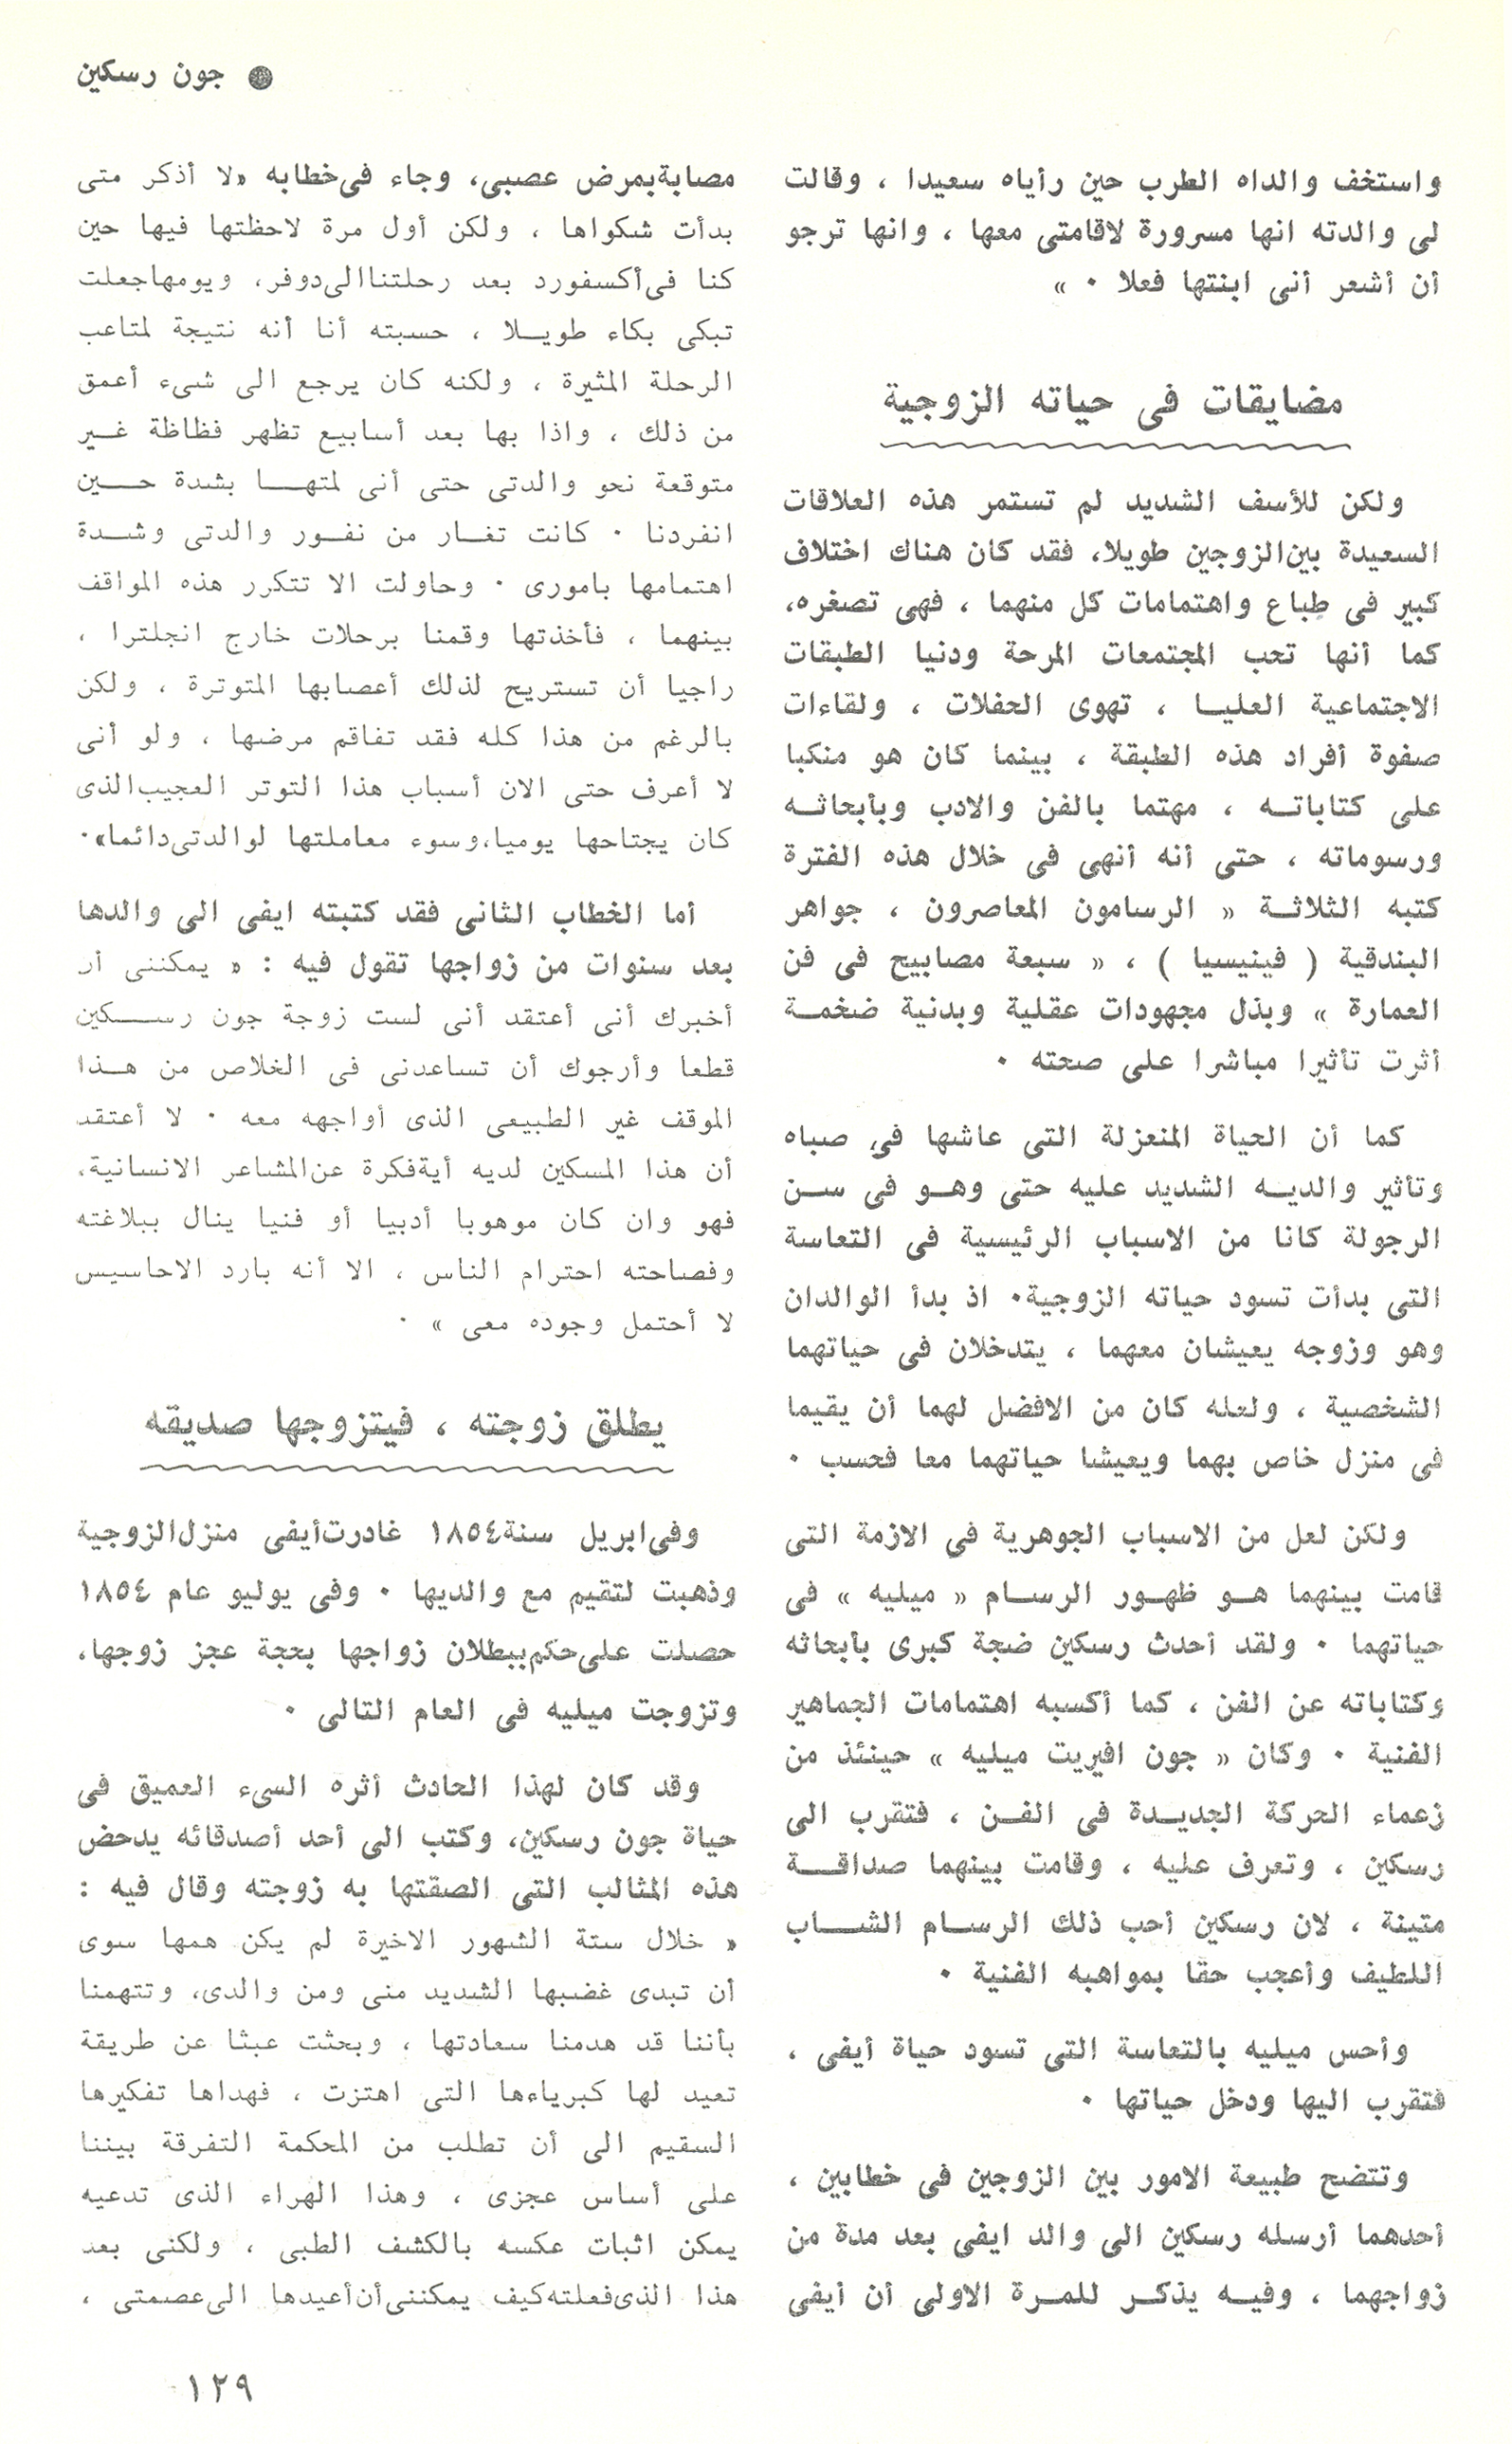 ● جون رسكين
واستخف والداه الطرب حين رأياه سعيدا ، وقالت
لى والدته انها مسرورة لاقامتى معها ، وانها ترجو
أن أشعر أنى ابنتها فعلا ٠ »
مضايقات فى حياته الزوجية
ولكن للأسف الشديد لم تستمر هذه العلاقات
السعيدة بين الزوجين طويلا، فقد كان هناك اختلاف
كبير فى طباع واهتمامات كل منهما ، فهى تصغره،
كما أنها تحب المجتمعات المرحة ودنيا الطبقات
الاجتماعية العليا ، تهوى الحفلات ، ولقاءات
صفوة أفراد هذه الطبقة ، بينما كان هو منكبا
على كتاباته ، مهتما بالفن والادب وبأبحاثه
ورسوماته ، حتى أنه أنهى فى خلال هذه الفترة
كتبه الثلاثة « الرسامون المعاصرون ، جواهر
البندقية ( فينيسيا ) ، « سبعة مصابيح فى فن
العمارة » وبذل مجهودات عقلية وبدنية ضخمة
أثرت تأثيرا مباشرا على صحته ٠
كما أن الحياة المنعزلة التى عاشها فى صباه
وتأثير والديه الشديد عليه حتى وهو فى سن
الرجولة كانا من الاسباب الرئيسية فى التعاسة
التى بدأت تسود حياته الزوجية٠ اذ بدأ الوالدان
وهو وزوجه يعيشان معهما ، يتدخلان فى حياتهما
الشخصية ، ولعله كان من الافضل لهما أن يقيما
فى منزل خاص بهما ويعيشا حياتهما معا فحسب ٠
ولكن لعل من الاسباب الجوهرية فى الازمة التى
قامت بينهما هو ظهور الرسام « ميليه » فى
حياتهما ٠ ولقد أحدث رسكين ضجة كبرى بأبحاثه
وكتاباته عن الفن ، كما أكسبه اهتمامات الجماهير
الفنية ٠ وكان « جون افيريت ميليه » حينئذ من
زعماء الحركة الجديدة فى الفن ، فتقرب الى
رسكين ، وتعرف عليه ، وقامت بينهما صداقة
متينة ، لان رسكين أحب ذلك الرسام الشاب
اللطيف وأعجب حقا بمواهبه الفنية ٠
وأحس ميليه بالتعاسة التى تسود حياة أيفى ،
فتقرب اليها ودخل حياتها ٠
وتتضح طبيعة الامور بين الزوجين فى خطابين ،
أحدهما أرسله رسكين الى والد ايفى بعد مدة من
زواجهما ، وفيه يذكر للمرة الاولى أن أيفى
مصابة بمرض عصبى، وجاء فى خطابه «لا أذكر متى
بدأت شكواها ، ولكن أول مرة لاحظتها فيها حين
كنا فى أكسفورد بعد رحلتنا الى دوفر، ويومها جعلت
تبكى بكاء طويلا ، حسبته أنا أنه نتيجة لمتاعب
الرحلة المثيرة ، ولكنه كان يرجع الى شىء أعمق
من ذلك ، واذا بها بعد أسابيع تظهر فظاظة غير
متوقعة نحو والدتى حتى أنى لمتها بشدة حين
انفردنا ٠ كانت تغار من نفور والدتى وشدة
اهتمامها بامورى ٠ وحاولت الا تتكرر هذه المواقف
بينهما ، فأخذتها وقمنا برحلات خارج انجلترا ،
راجيا أن تستريح لذلك أعصابها المتوترة ، ولكن
بالرغم من هذا كله فقد تفاقم مرضها ، ولو أنى
لا أعرف حتى الان أسباب هذا التوتر العجيب الذى
كان يجتاحها يوميا،وسوء معاملتها لوالدتى دائما»٠
أما الخطاب الثانى فقد كتبته ايفى الى والدها
بعد سنوات من زواجها تقول فيه : « يمكننى أن
أخبرك أنى أعتقد أنى لست زوجة جون رسكين
قطعا وأرجوك أن تساعدنى فى الخلاص من هذا
الموقف غير الطبيعى الذى أواجهه معه ٠ لا أعتقد
أن هذا المسكين لديه أية فكرة عن المشاعر الانسانية،
فهو وان كان موهوبا أدبيا أو فنيا ينال ببلاغته
وفصاحته احترام الناس ، الا أنه بارد الاحاسيس
لا أحتمل وجوده معى » ٠
يطلق زوجته ، فيتزوجها صديقه
وفى ابريل سنة ١٨٥٤ غادرت أيفى منزل الزوجية
وذهبت لتقيم مع والديها ٠ وفى يوليو عام ١٨٥٤
حصلت على حكم ببطلان زواجها بحجة عجز زوجها،
وتزوجت ميليه فى العام التالى ٠
وقد كان لهذا الحادث أثره السىء العميق فى
حياة جون رسكين، وكتب الى أحد أصدقائه يدحض
هذه المثالب التى الصقتها به زوجته وقال فيه :
« خلال ستة الشهور الاخيرة لم يكن همها سوى
أن تبدى غضبها الشديد منى ومن والدى، وتتهمنا
بأننا قد هدمنا سعادتها ، وبحثت عبثا عن طريقة
تعيد لها كبرياءها التى اهتزت ، فهداها تفكيرها
السقيم الى أن تطلب من المحكمة التفرقة بيننا
على أساس عجزى ، وهذا الهراء الذى تدعيه
يمكن اثبات عكسه بالكشف الطبى ، ولكنى بعد
هذا الذى فعلته كيف يمكننى أن أعيدها الى عصمتى ،
١٢٩